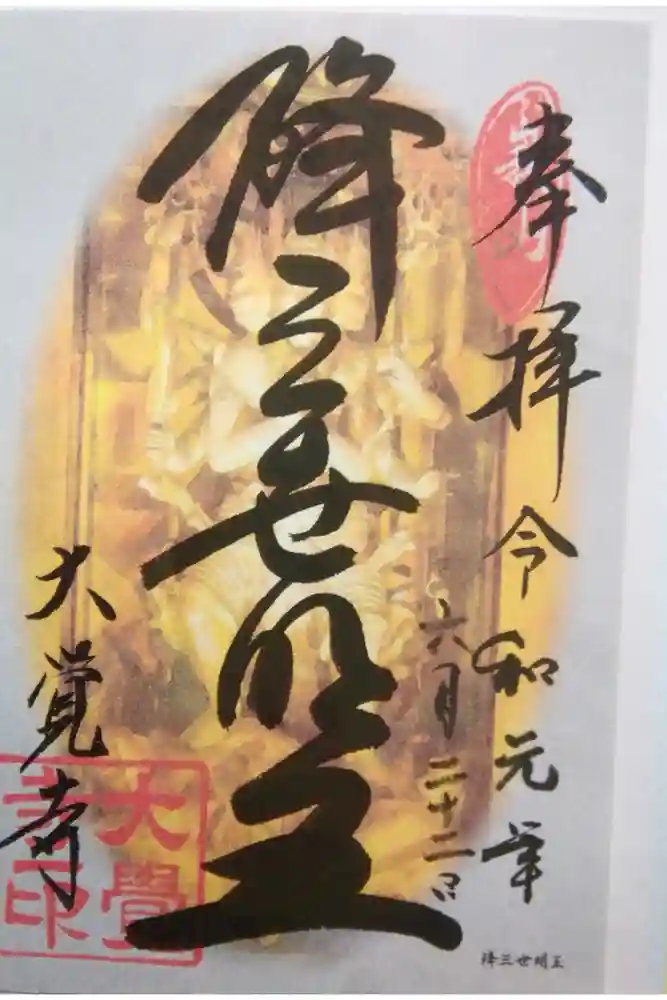 奉拝
令和元年
六月二十二日
降三世明王
大覚寺
大覺
寺印
降三世明王